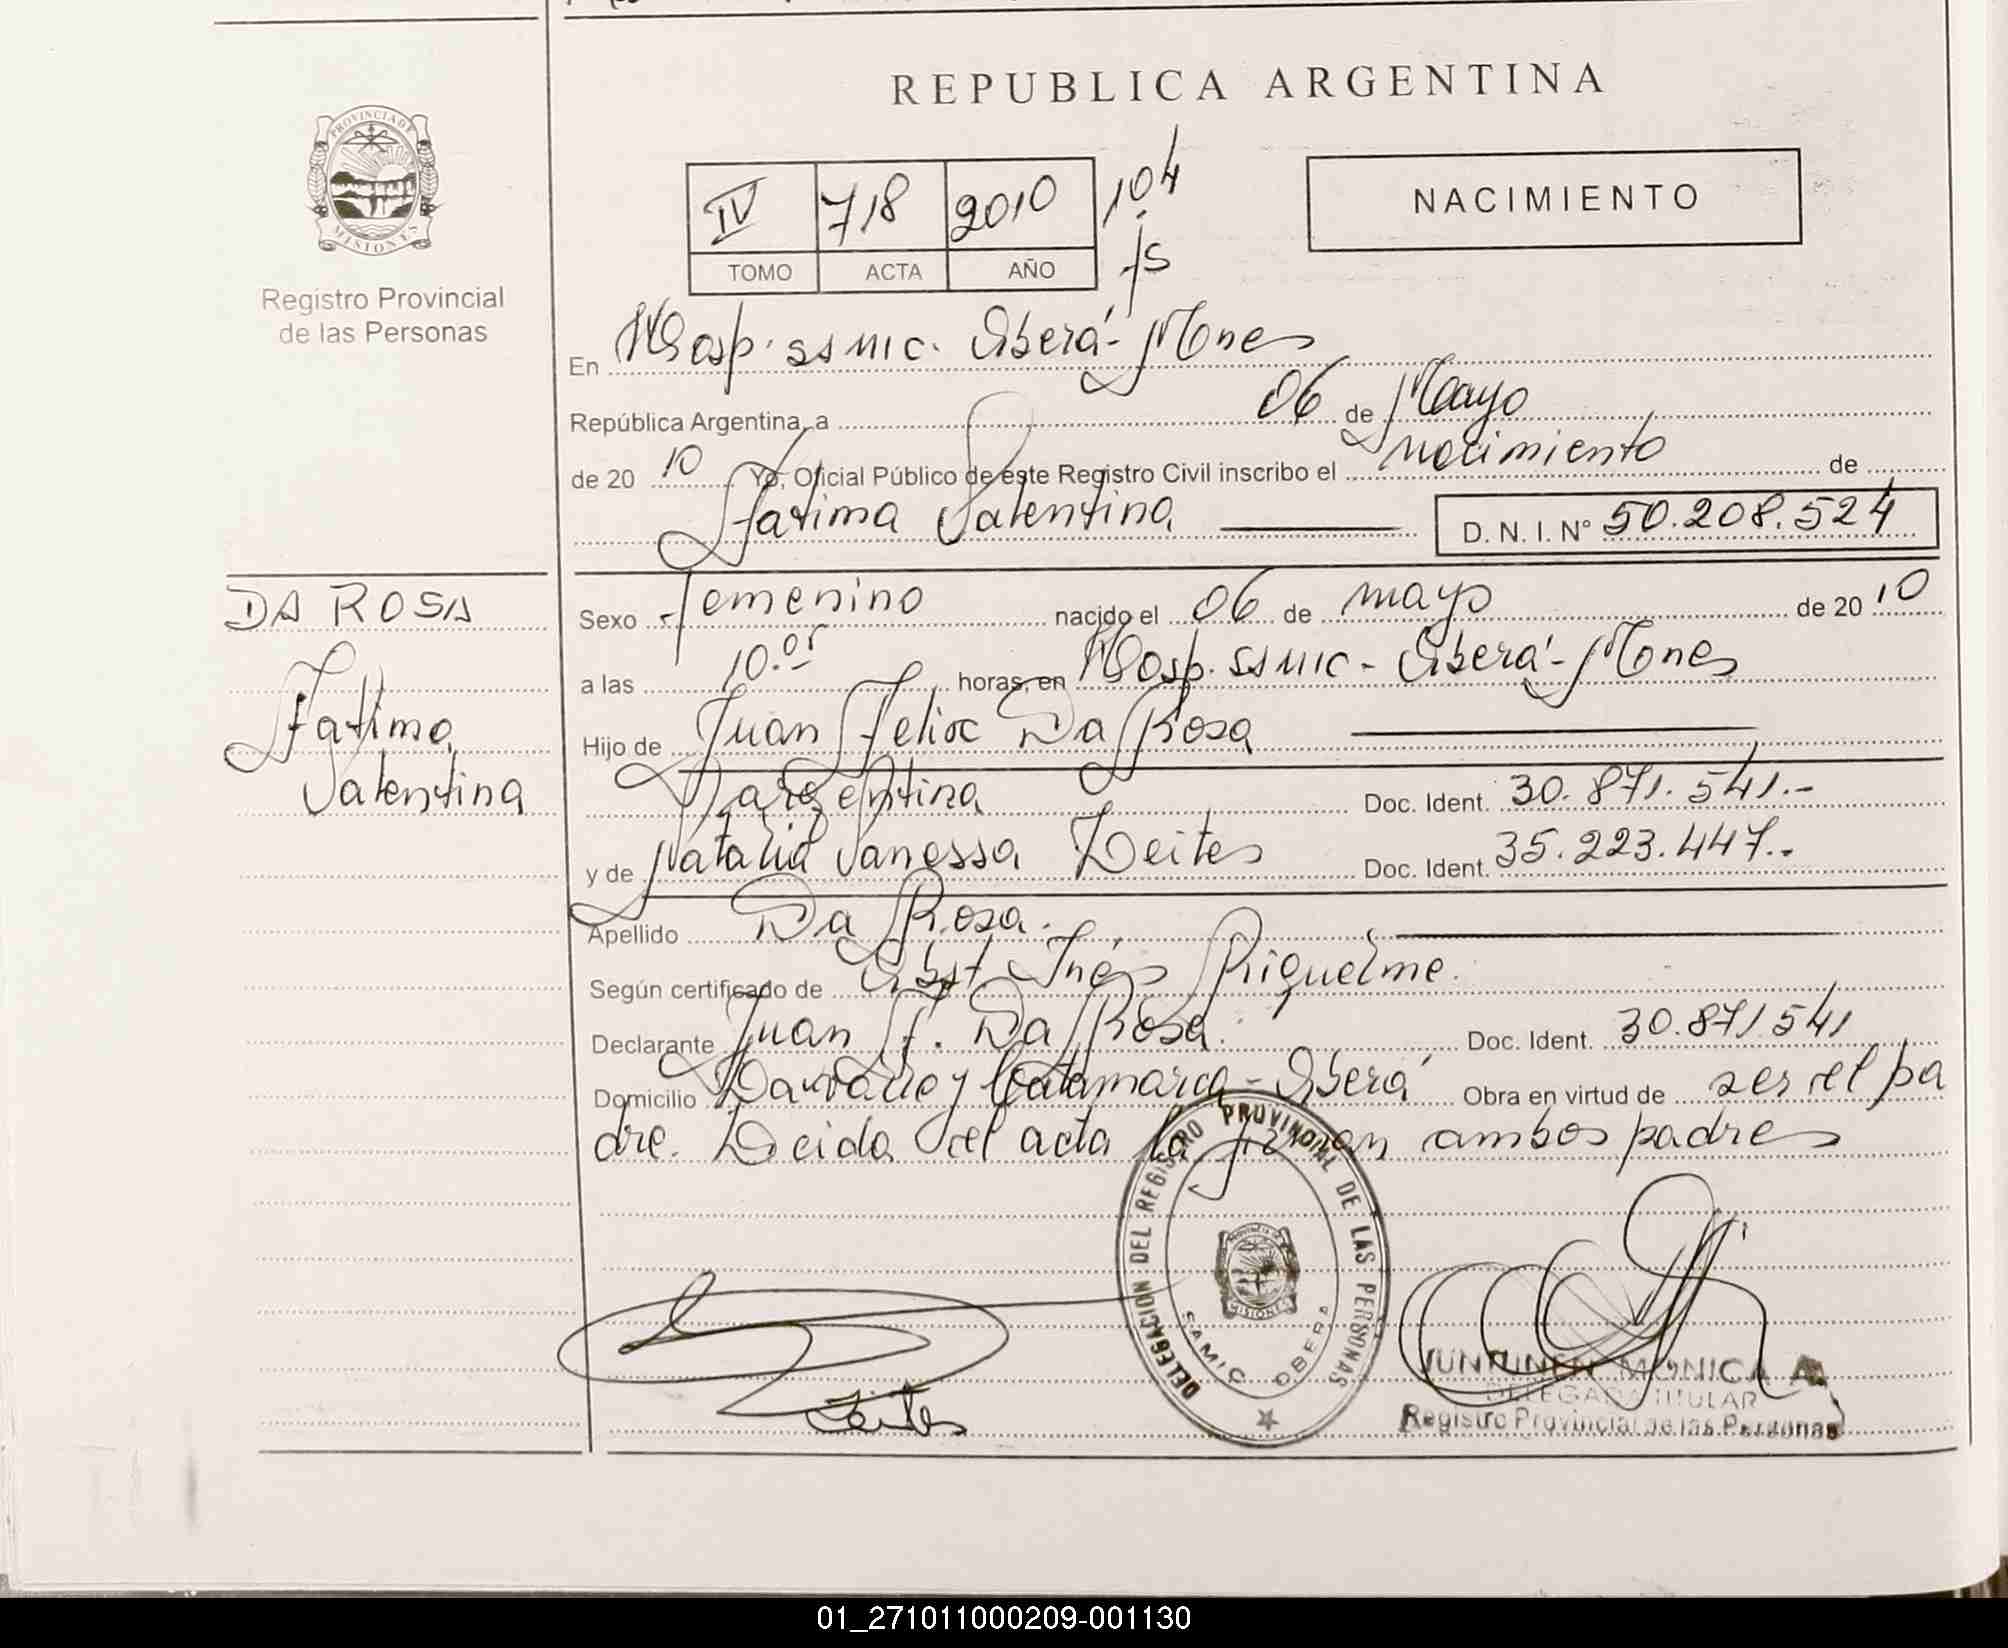 REPUBLICA ARGENTINA
PROVINCIA DE
MISIONES
Registro Provincial
de las Personas
IV 718 2010 104
TOMO ACTA AÑO fs
NACIMIENTO
En Hosp. SAMIC. Oberá - Mnes
República Argentina, a 06 de Mayo
de 2010 Yo, Oficial Público de este Registro Civil inscribo el nacimiento de
Fatima Valentina D. N. I. Nº 50.208.524
DA ROSA
Fatima
Valentina
Sexo femenino nacido el 06 de mayo de 2010
a las 10.05 horas, en Hosp. SAMIC - Oberá - Mnes
Hijo de Juan Felix Da Rosa
argentina Doc. Ident. 30.871.541.-
y de Natalia Vanessa Zeites Doc. Ident. 35.223.447.-
Apellido Da Rosa.
Según certificado de Obst. Inés Riquelme.
Declarante Juan F. Da Rosa. Doc. Ident. 30.871541
Domicilio y Catamarca - Oberá Obra en virtud de ser el pa
dre. Leida el acta la firman ambos padres
DELEGACION DEL REGISTRO PROVINCIAL DE LAS PERSONAS
PROVINCIA DE
MISIONES
SAMIC OBERA
Zeites
MONICA A.
DELEGADA TITULAR
Registro Provincial de las Personas
01_271011000209-001130